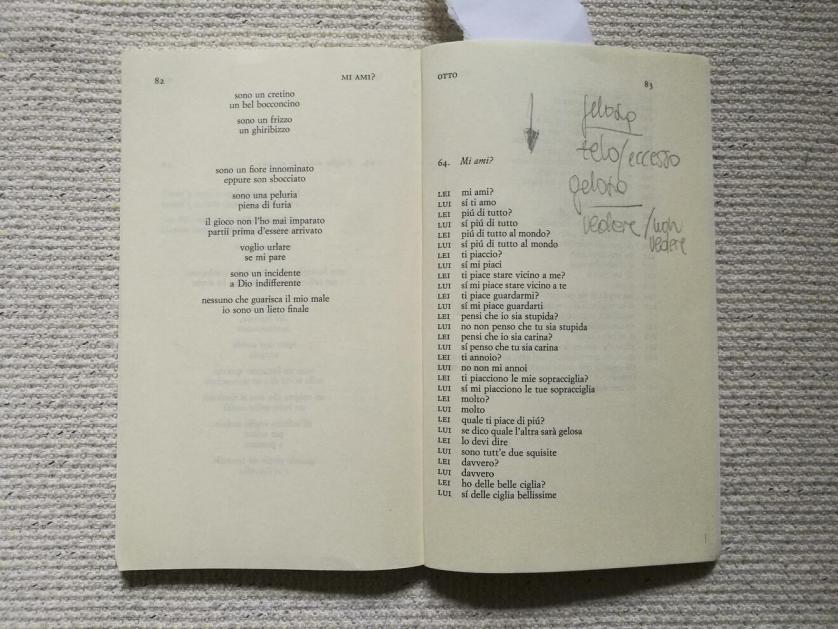 82
MI AMI?
sono un cretino
un bel bocconcino
sono un frizzo
un ghiribizzo
sono un fiore innominato
eppure son sbocciato
sono una peluria
piena di furia
il gioco non l'ho mai imparato
partii prima d'essere arrivato
voglio urlare
se mi pare
sono un incidente
a Dio indifferente
nessuno che guarisca il mio male
io sono un lieto finale
OTTO
83
geloso
telo/eccesso
geloso
vedere/non
vedere
64. Mi ami?
LEI mi ami?
LUI sí ti amo
LEI piú di tutto?
LUI sí piú di tutto
LEI piú di tutto al mondo?
LUI sí piú di tutto al mondo
LEI ti piaccio?
LUI sí mi piaci
LEI ti piace stare vicino a me?
LUI sí mi piace stare vicino a te
LEI ti piace guardarmi?
LUI sí mi piace guardarti
LEI pensi che io sia stupida?
LUI no non penso che tu sia stupida
LEI pensi che io sia carina?
LUI sí penso che tu sia carina
LEI ti annoio?
LUI no non mi annoi
LEI ti piacciono le mie sopracciglia?
LUI sí mi piacciono le tue sopracciglia
LEI molto?
LUI molto
LEI quale ti piace di piú?
LUI se dico quale l'altra sarà gelosa
LEI lo devi dire
LUI sono tutt'e due squisite
LEI davvero?
LUI davvero
LEI ho delle belle ciglia?
LUI sí delle ciglia bellissime